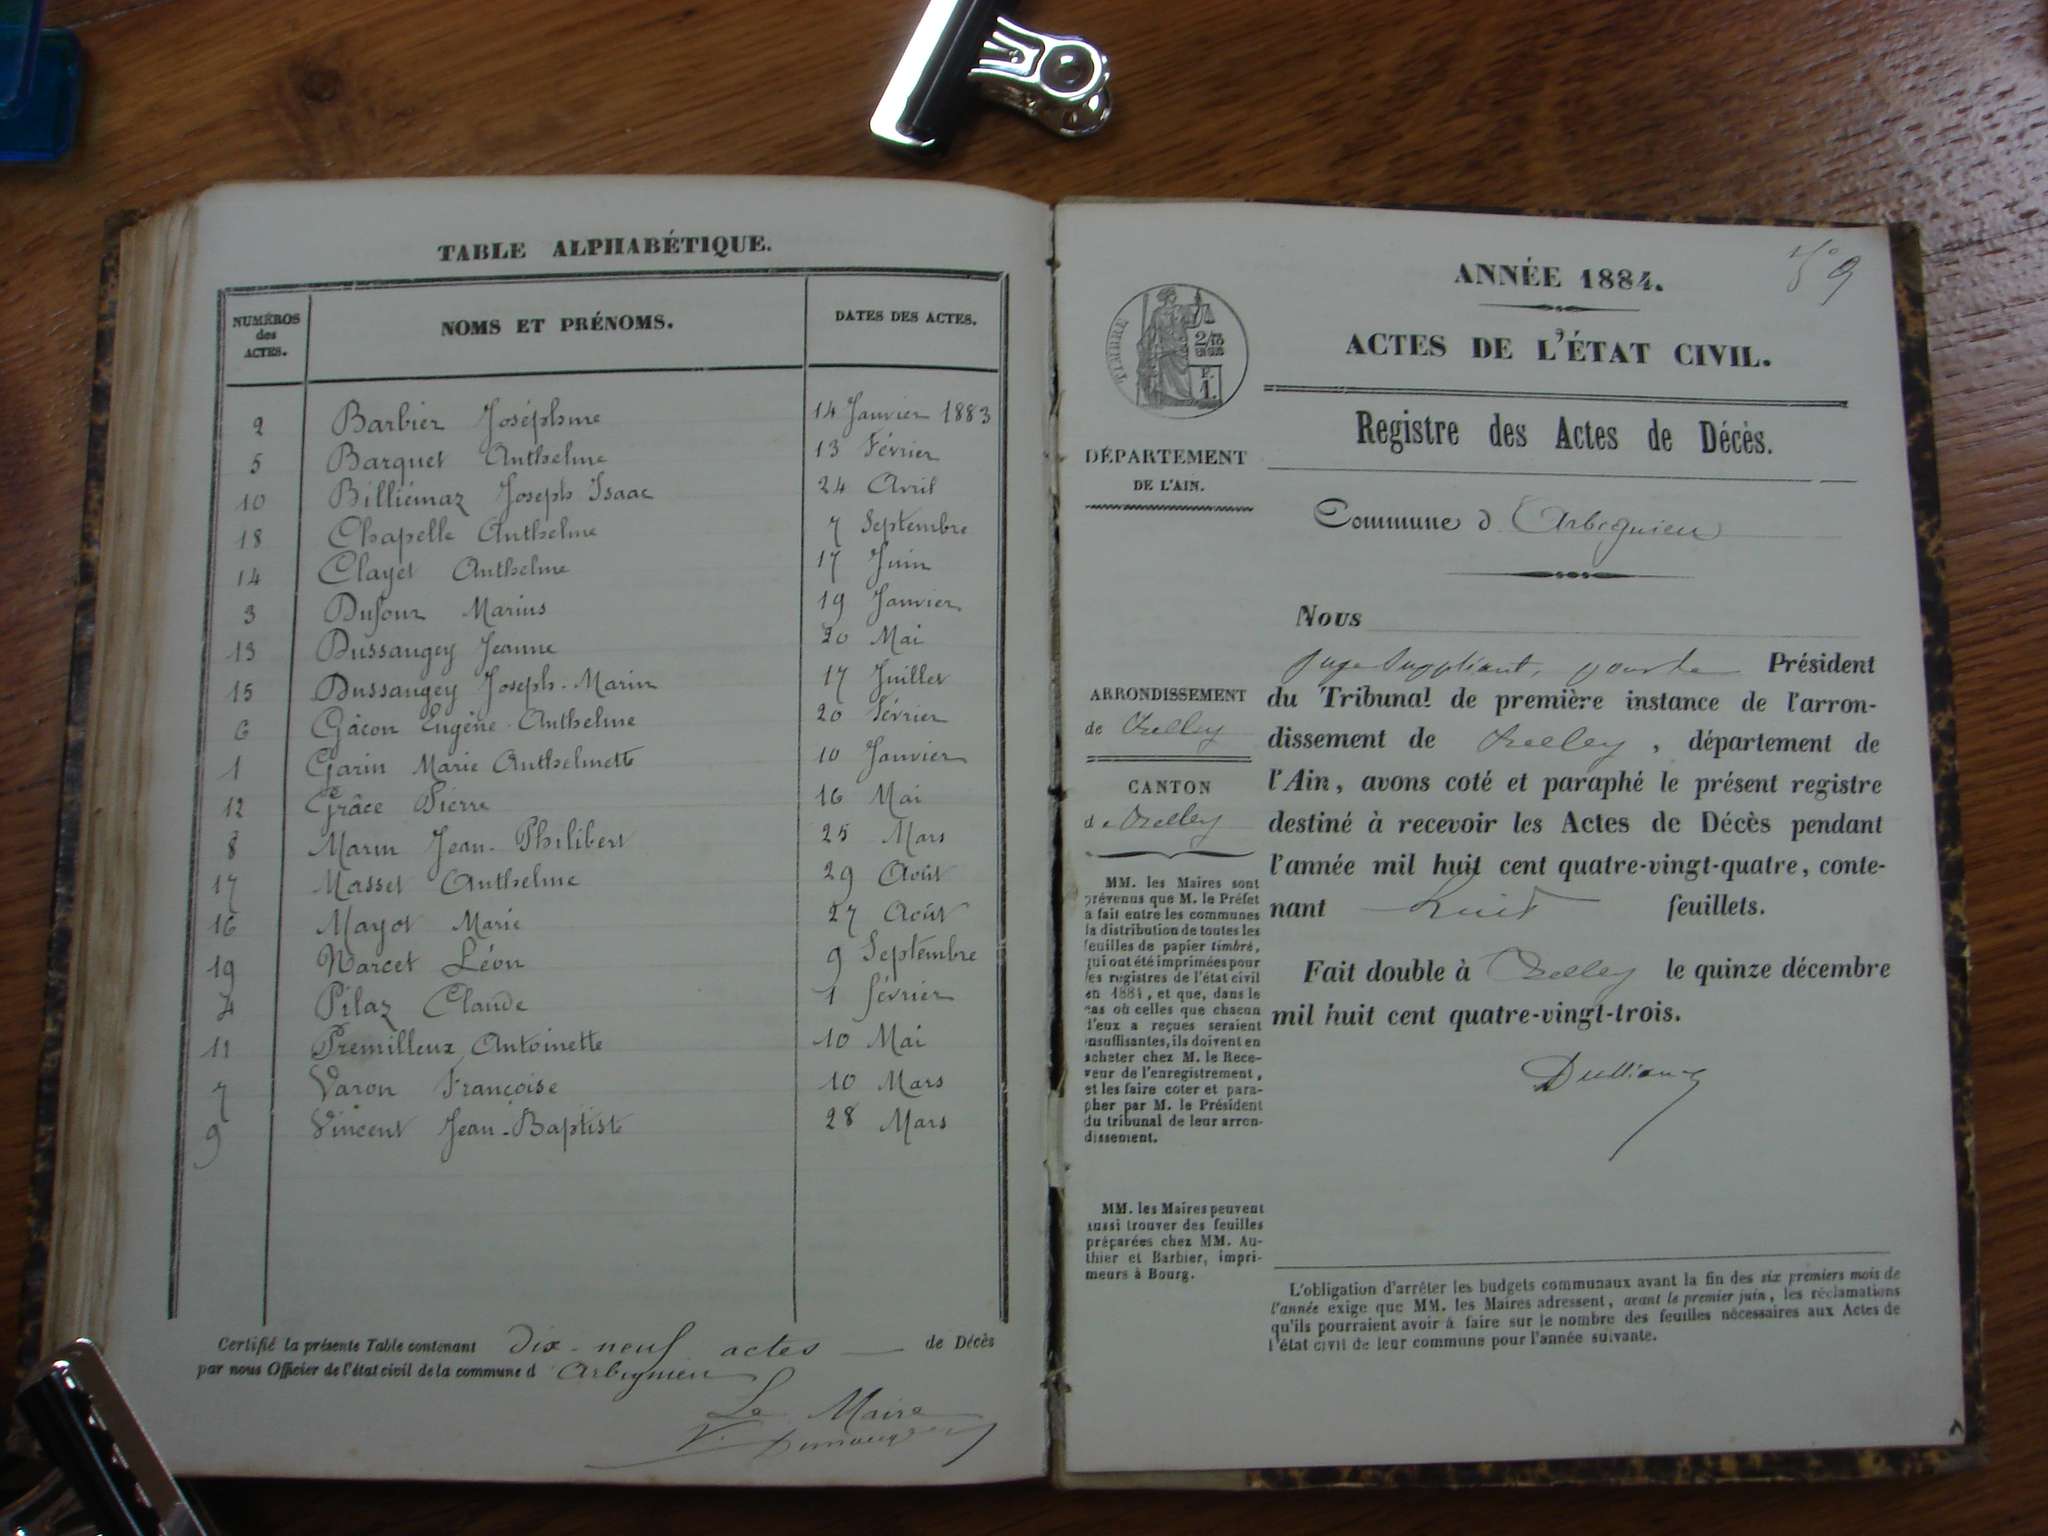 TABLE ALPHABÉTIQUE.
NUMÉROS des ACTES. NOMS ET PRÉNOMS. DATES DES ACTES.
2 Barbier Joséphine 14 Janvier 1883
5 Barquet Anthelme 13 Février
10 Billiémaz Joseph Isaac 24 Avril
18 Chapelle Anthelme 7 Septembre
14 Clayet Anthelme 17 Juin
3 Dufour Marius 19 Janvier
13 Dussaugey Jeanne 20 Mai
15 Dussaugey Joseph-Marin 17 Juillet
6 Gâcon Eugène-Anthelme 20 Février
1 Garin Marie Anthelmette 10 Janvier
12 Grâce Pierre 16 Mai
8 Marin Jean-Philibert 25 Mars
17 Masset Anthelme 29 Août
16 Mayot Marie 27 Août
19 Narcet Léon 9 Septembre
4 Pilaz Claude 1 février
11 Premilleux Antoinette 10 Mai
7 Varon Françoise 10 Mars
9 Vincent Jean-Baptiste 28 Mars
Certifié la présente Table contenant dix-neuf actes de Décès
par nous Officier de l'état civil de la commune d Arbignieu
Le Maire
ANNÉE 1884.
ACTES DE L'ÉTAT CIVIL.
Registre des Actes de Décès.
TIMBRE
2/10
EN SUS
DÉPARTEMENT
DE L'AIN.
Commune d'Arbignieu
Nous
juge suppléant, pour le Président
du Tribunal de première instance de l'arron-
dissement de Belley, département de
l'Ain, avons coté et paraphé le présent registre
destiné à recevoir les Actes de Décès pendant
l'année mil huit cent quatre-vingt-quatre, conte-
nant huit feuillets.
Fait double à Belley le quinze décembre
mil huit cent quatre-vingt-trois.
ARRONDISSEMENT
de Belley
CANTON
de Belley
MM. les Maires sont
prévenus que M. le Préfet
a fait entre les communes
la distribution de toutes les
feuilles de papier timbré,
qui ont été imprimées pour
les registres de l'état civil
en 1884, et que, dans le
cas où celles que chacun
d'eux a reçues seraient
insuffisantes, ils doivent en
acheter chez M. le Rece-
veur de l'enregistrement,
et les faire coter et para-
pher par M. le Président
du tribunal de leur arron-
dissement.
MM. les Maires peuvent
aussi trouver des feuilles
préparées chez MM. Au-
thier et Barbier, impri-
meurs à Bourg.
L'obligation d'arrêter les budgets communaux avant la fin des six premiers mois de
l'année exige que MM. les Maires adressent, avant le premier juin, les réclamations
qu'ils pourraient avoir à faire sur le nombre des feuilles nécessaires aux Actes de
l'état civil de leur commune pour l'année suivante.